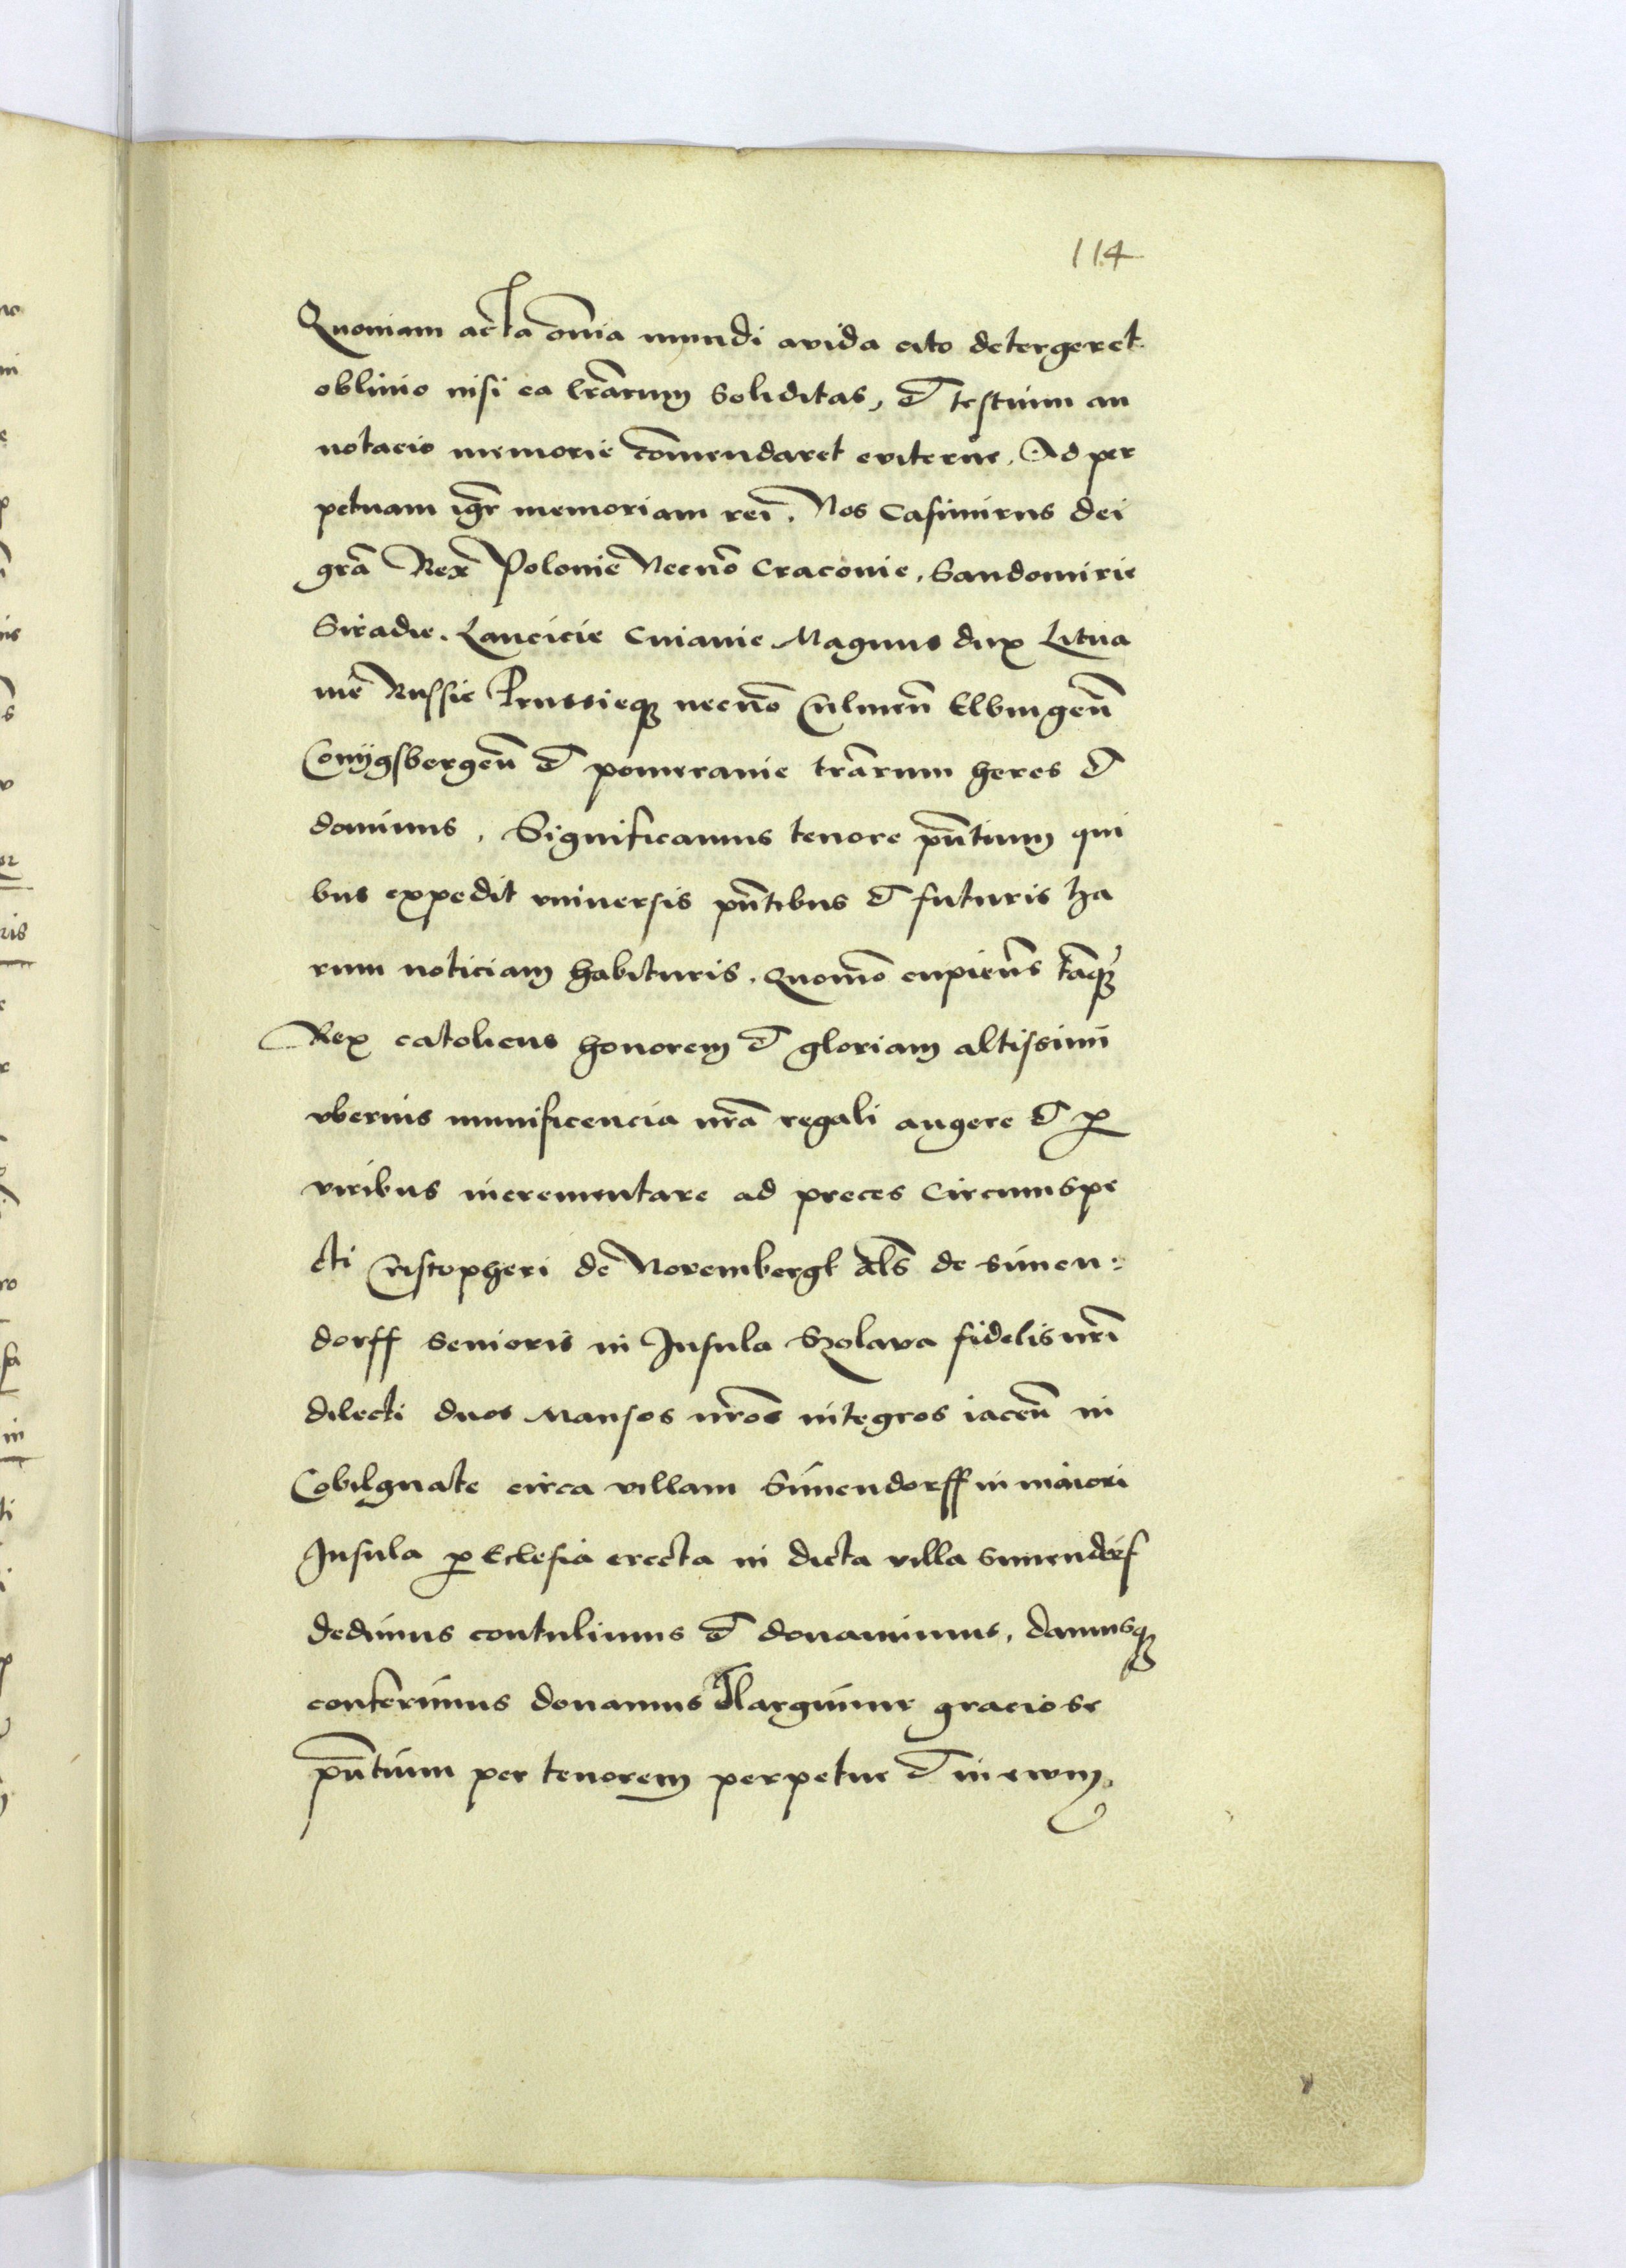 114
Quoniam acta oĩa mundi avida cito detergeret
oblivio nisi ea lrãrum soliditas, et testium an
notacio memorie cõmendaret eviterne. Ad per
petuam igr̃ memoriam rei. Nos Casimirus dei
grã Rex Polonie Necnõ Craconie, Sandomirie
Siradie. Lancicie Cuiavie Magnus dux Litua
nie Russie Prussieq̃ necnõ Culmeñ Elbingeñ
Conygsbergeñ et pomeranie trãrum heres et
dominus. Significamus tenore pñtium qui
bus expedit universis pñtibus et futuris ha
rum noticiam habituris. Quomõ cupieñs tãq̃
Rex catolicus honorem et gloriam altissimi
uberius munificencia nrã regali augere et p̱
viribus incrementare ad preces Circumspe
cti Cristopheri de Norembergk als̃ de simen:
dorff senioris in Insula Szolava fidelis nrĩ
dilecti duos Mansos nrõs integros iaceñ in
Cobilgnate circa villam Simendorff in maiori
Insula p̱ Eclesia erecta in dicta villa Simendorf
dedimus contulimus et donavimus, damusq̃
conferimus donamus et largimur graciose
pñtium per tenorem perpetue et in evum.